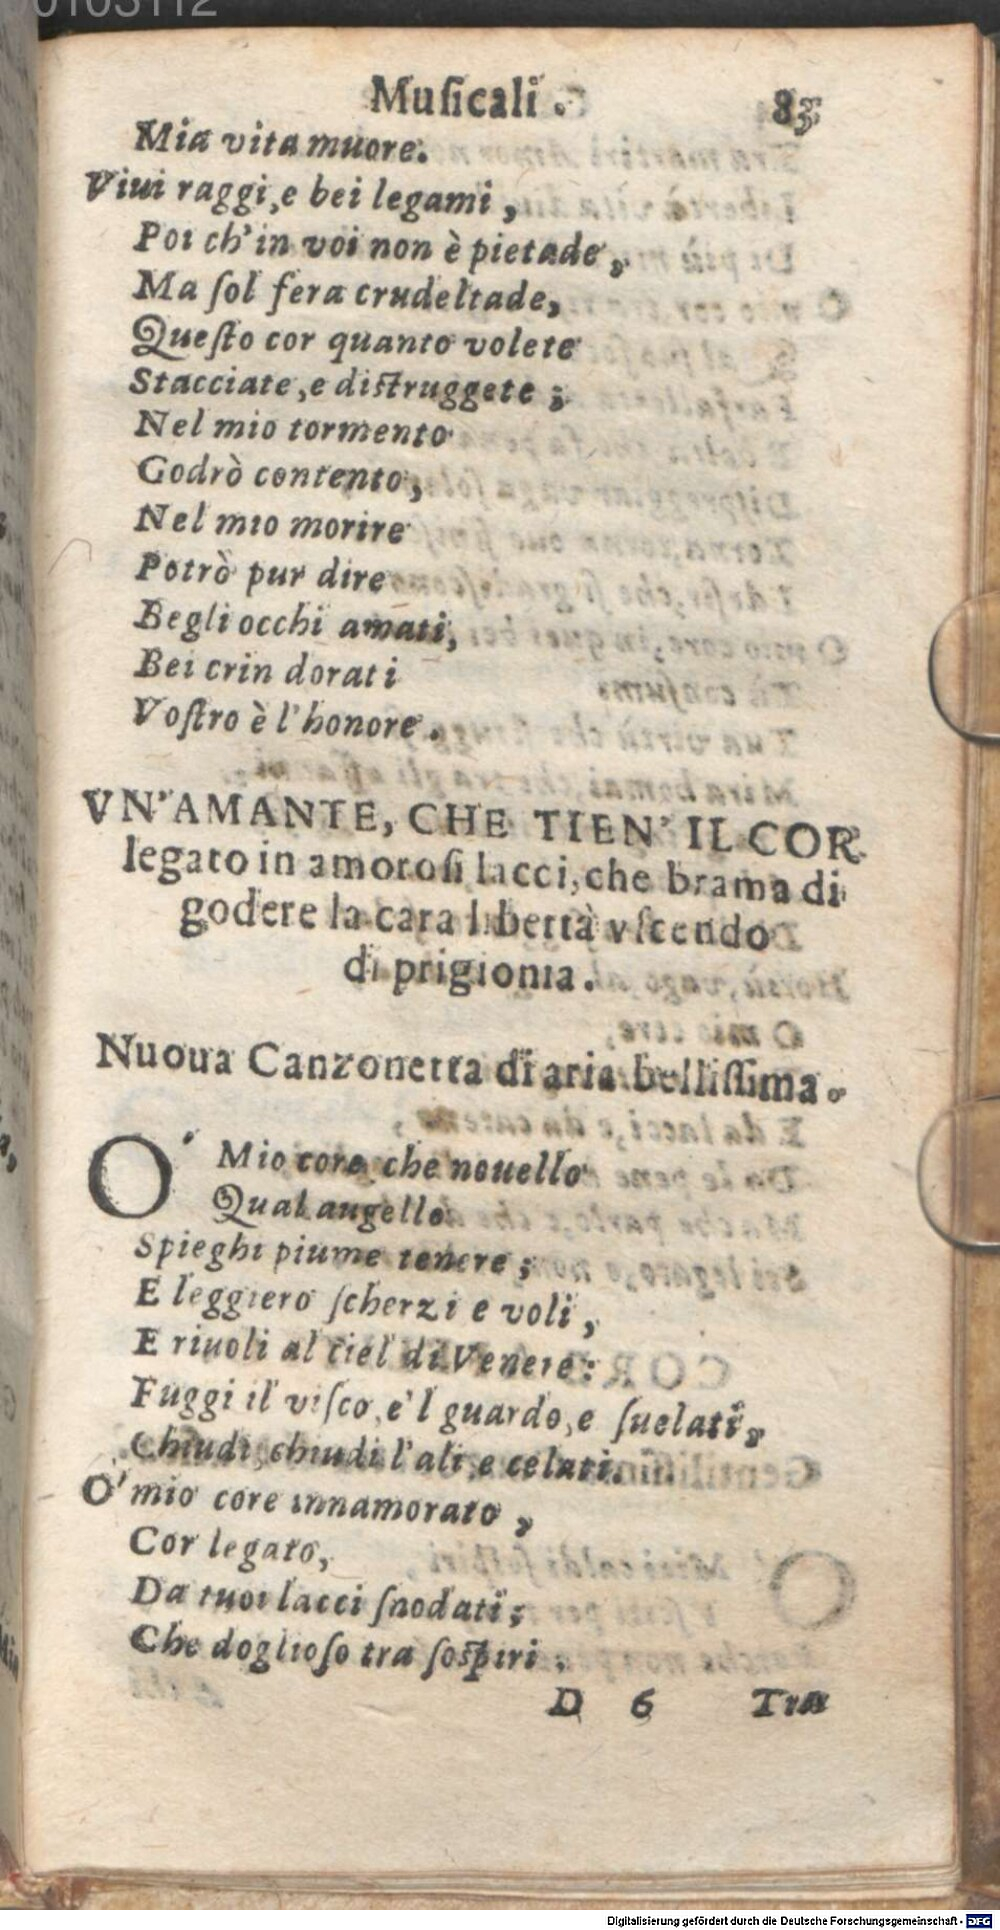 Muſicali. 83
Mia vita muore.
Viui raggi, e bei legami,
Poi ch'in voi non è pietade,
Ma ſol fera crudeltade,
Queſto cor quanto volete
Stacciate, e diſtruggete;
Nel mio tormento
Godrò contento,
Nel mio morire
Potrò pur dire
Begli occhi amati,
Bei crin dorati
Voſtro è l'honore.
VN'AMANTE, CHE TIEN' IL COR
legato in amoroſi lacci, che brama di
godere la cara libertà vſcendo
di prigionia.
Nuoua Canzonetta di aria belliſſima.
O' Mio core che nouello
Qual augello
Spieghi piume tenere;
E leggiero ſcherzi e voli,
E riuoli al ciel di Venere:
Fuggi il viſco, e'l guardo, e ſuelati,
Chiudi, chiudi l'ali, e celati.
O' mio core innamorato,
Cor legato,
Da tuoi lacci ſnodati;
Che doglioſo tra ſoſpiri,
D 6 Tra
Digitalisierung gefördert durch die Deutsche Forschungsgemeinschaft - DFG